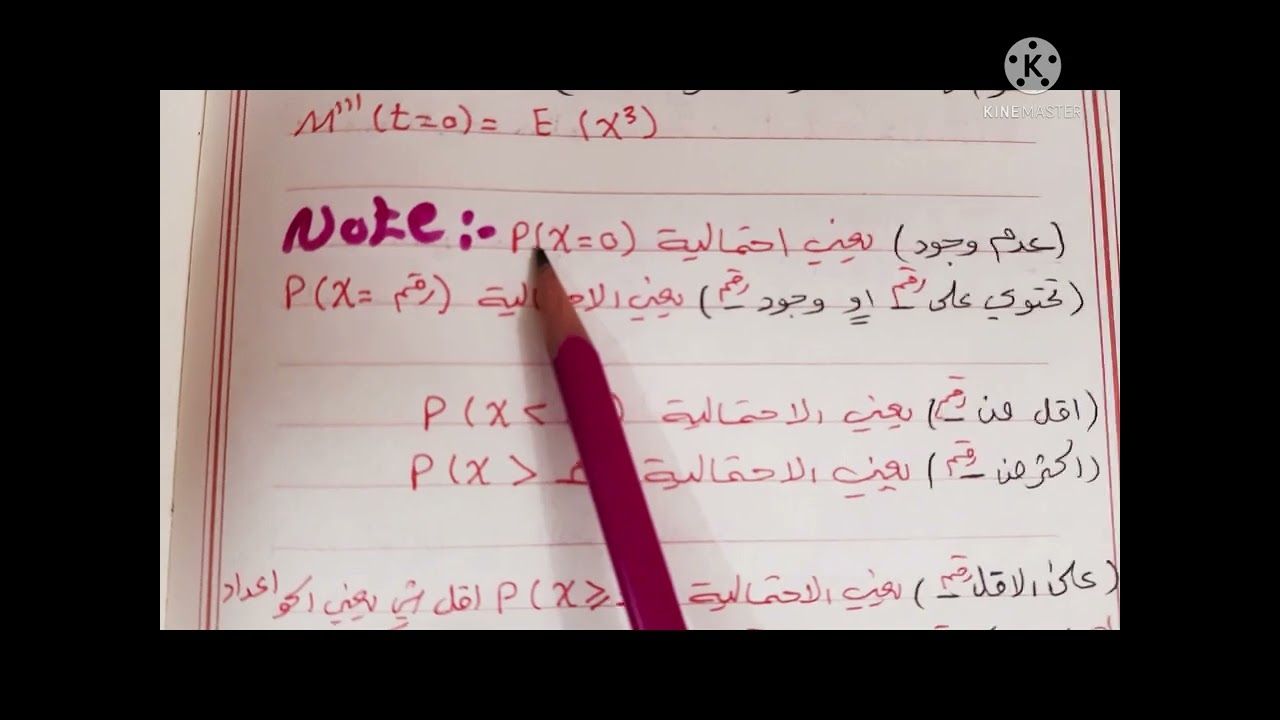 KINEMASTER
M'''(t=0) = E (x³)
Note:- (عدم وجود) يعني احتمالية P(X=0)
(تحتوي على رقم او وجود رقم) يعني الاحتمالية P(X= رقم)
(اقل من رقم) يعني الاحتمالية P(X<
(اكثر من رقم) يعني الاحتمالية P(X>
(على الاقل رقم) يعني الاحتمالية P(X≥ اقل شي يعني اكو اعداد